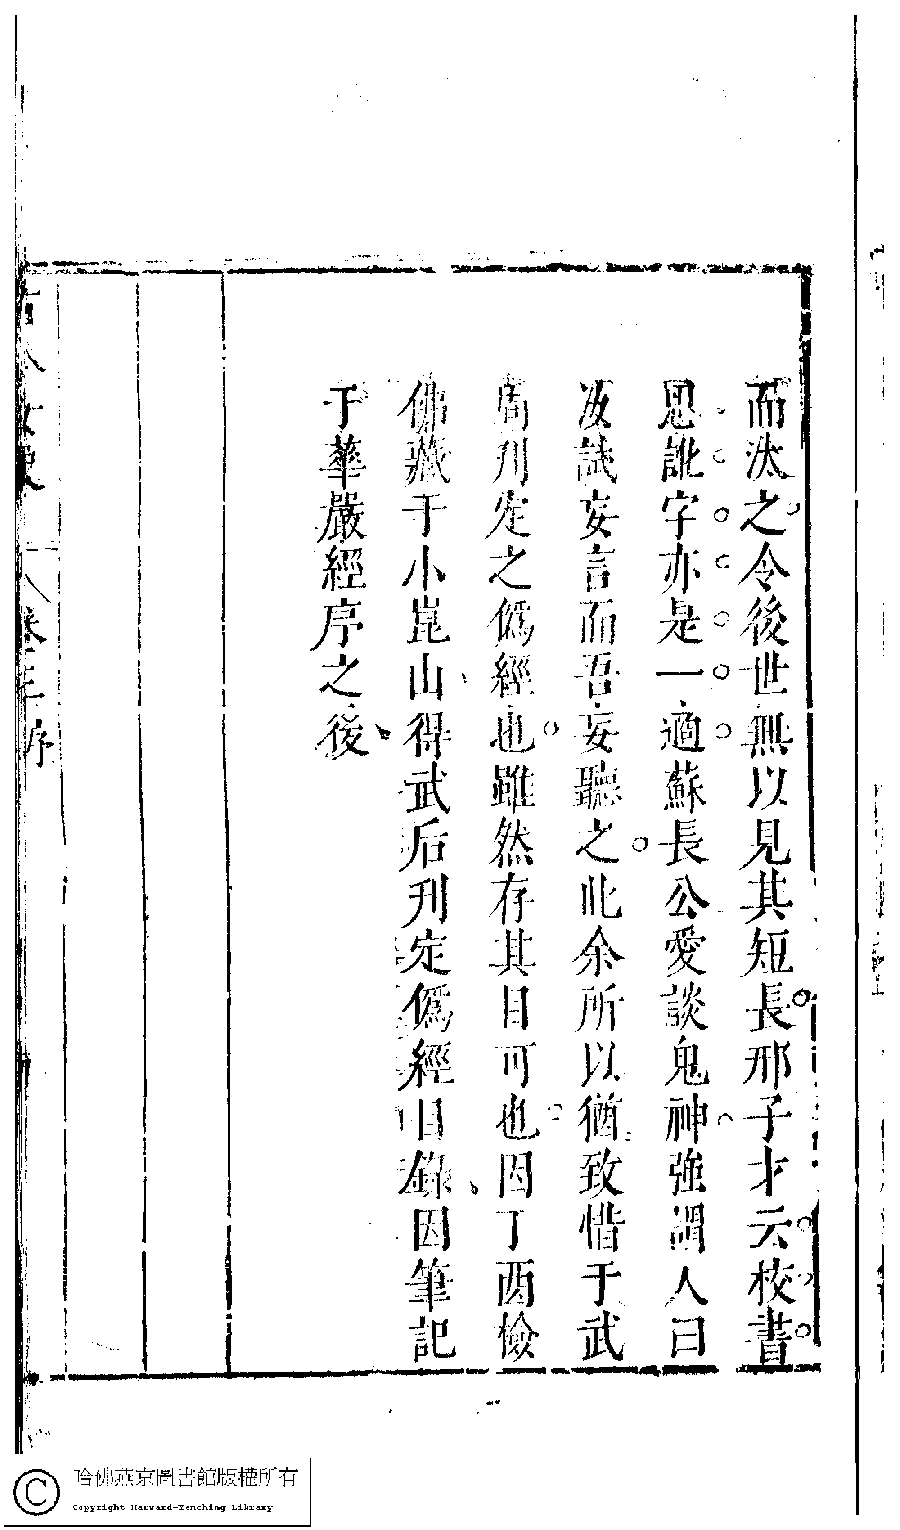 而汰之令後世無以見其短長邢子才云校書
思訛字亦是一適蘇長公愛談鬼神強謂人曰
汝試妄言而吾妄聽之此余所以猶致惜于武
周刋定之僞經也雖然存其目可也因丁酉儉
佛藏于小崑山得武后刋定僞經目錄因筆記
于華嚴經序之後
卷三
序
哈佛燕京圖書館版權所有
Copyright Harvard-Yenching Library